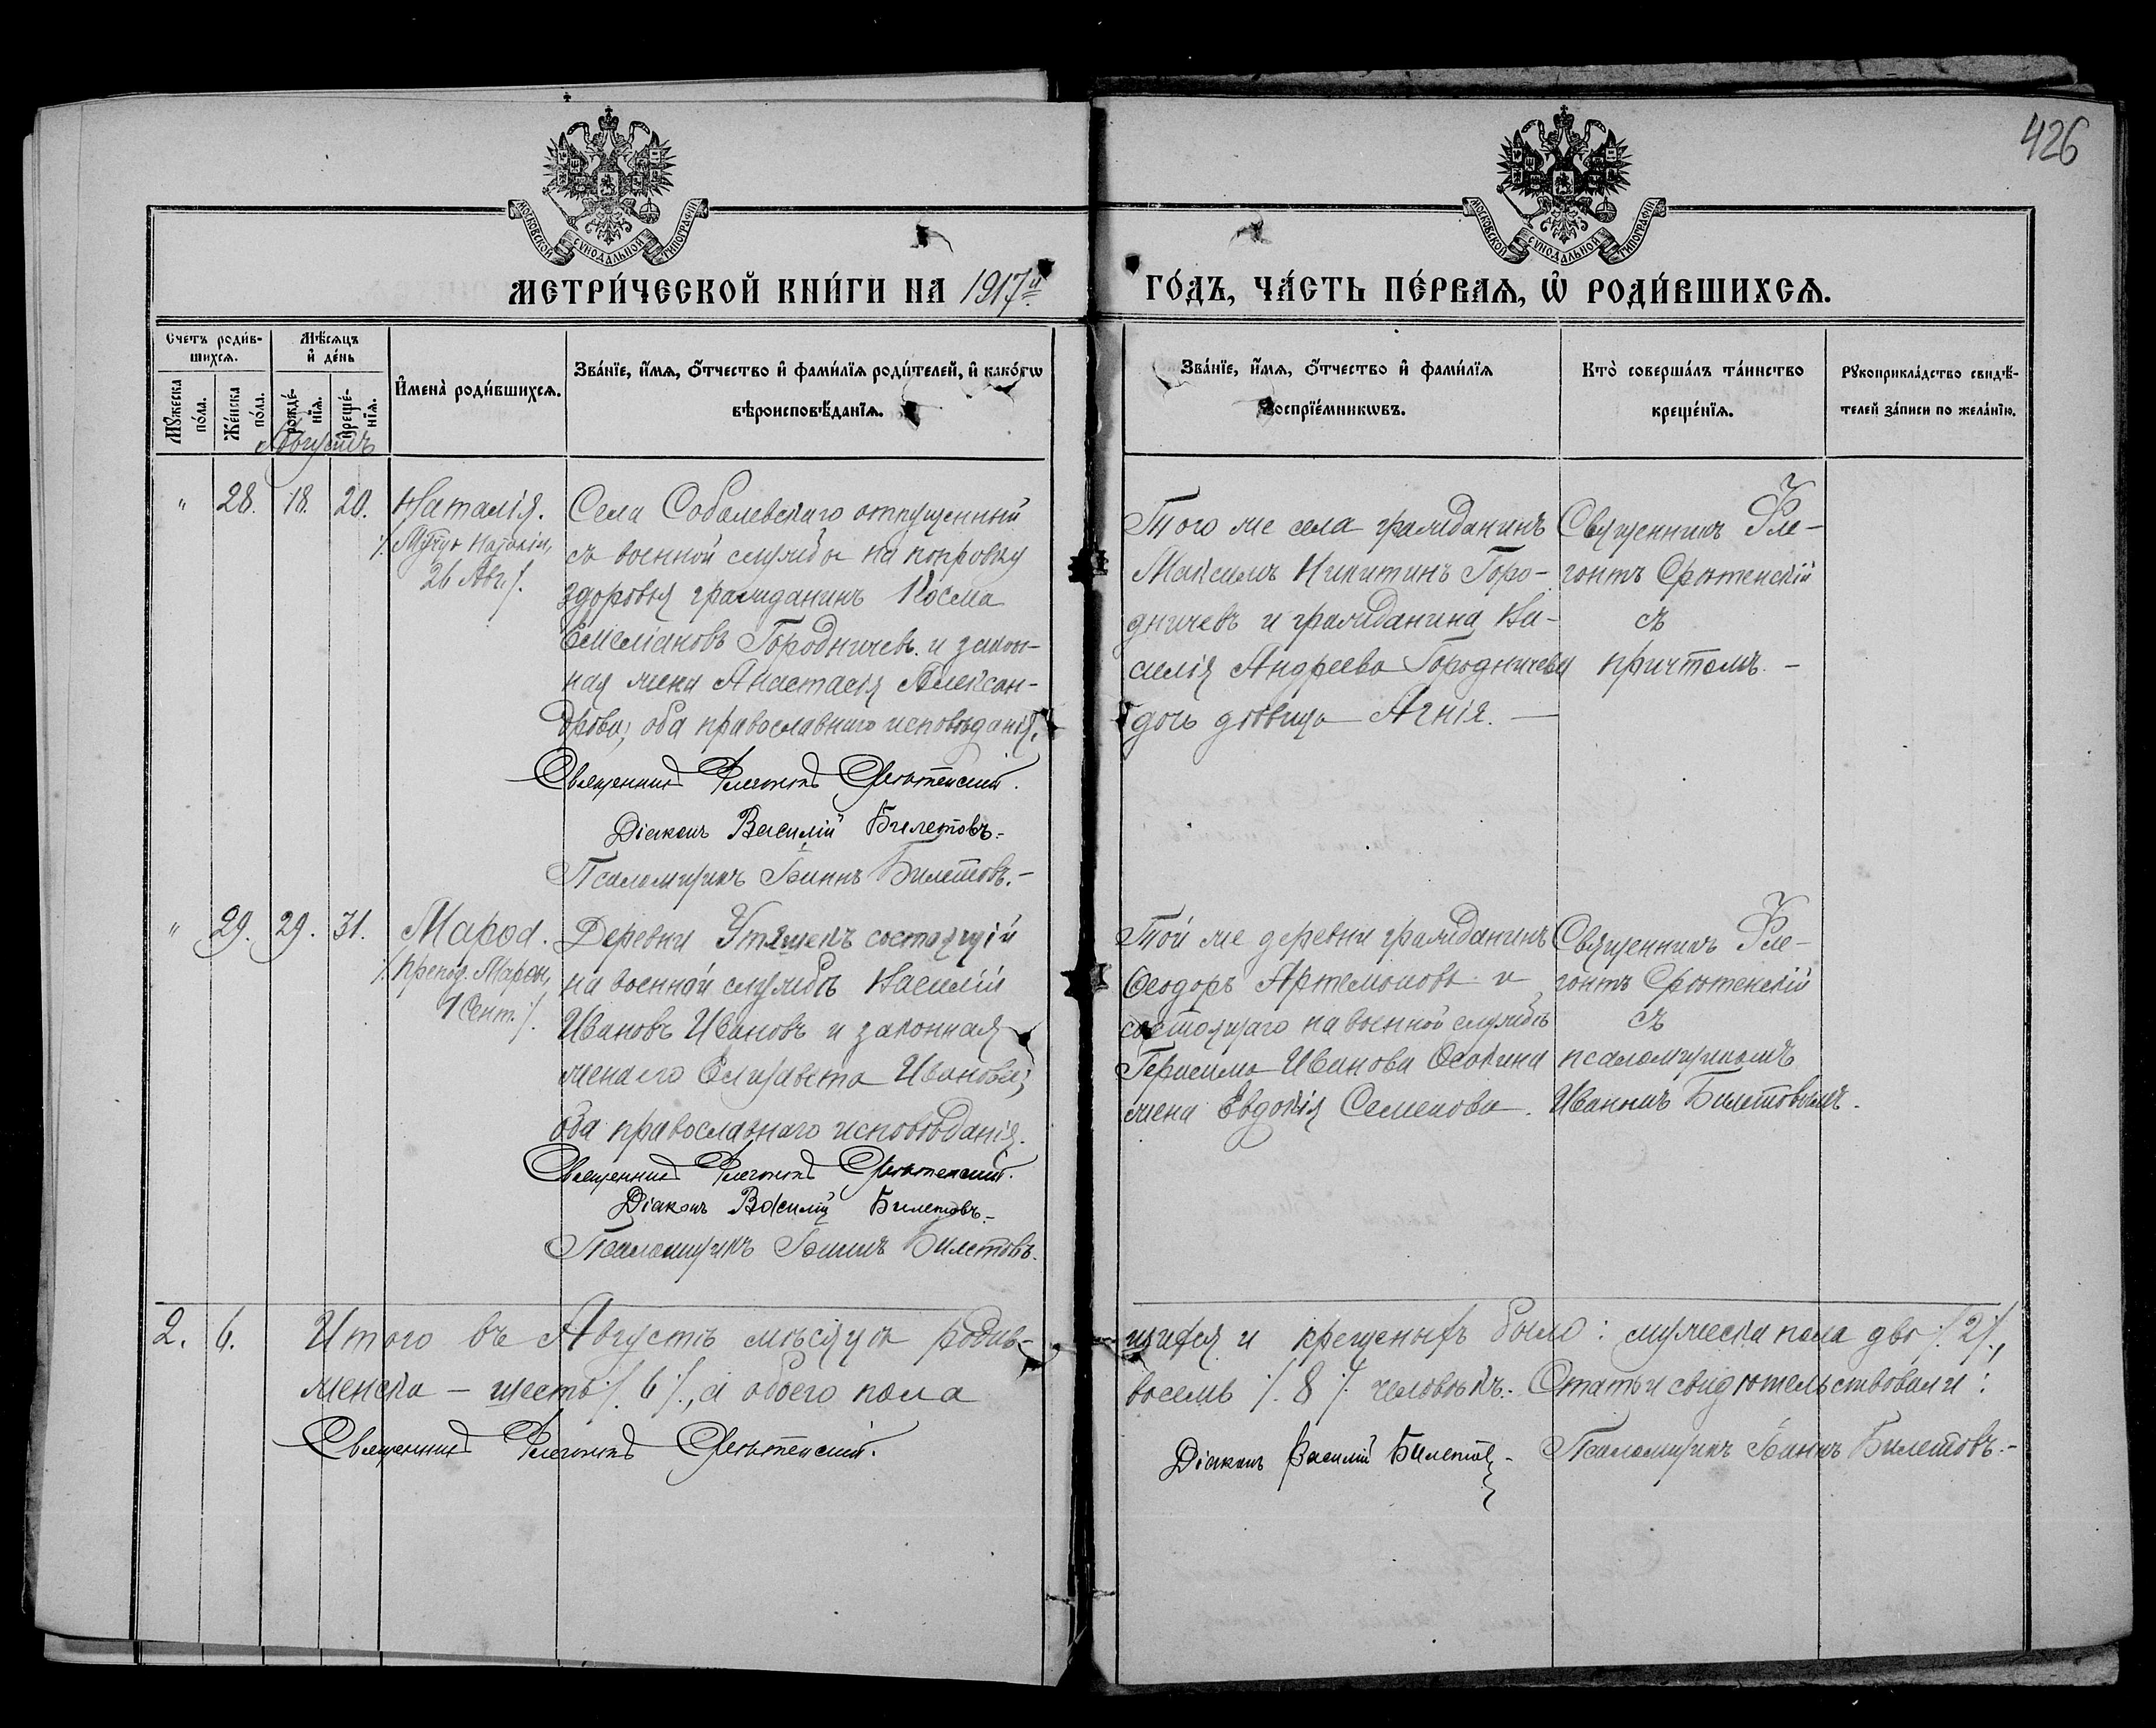 426
МОСКОВСКОЙ СѴНОДАЛЬНОЙ ТИПОГРАФІИ
МОСКОВСКОЙ СѴНОДАЛЬНОЙ ТИПОГРАФІИ
МЕТРИ́ЧЕСКОЙ КНИ́ГИ НА 1917й
ГО́ДЪ, ЧА́СТЬ ПЕ́РВАЯ, Ѡ҆ РОДИ́ВШИХСЯ.
Счетъ роди́в-
шихся.
Мѣ́сяцъ
и҆ де́нь
Мꙋ́жеска по́ла.
Же́нска по́ла.
рожде́-
нїя.
креще́-
нїя.
И҆мена̀ роди́вшихся.
Зва́нїе, и҆́мя, ѻ҆́тчество и҆ фами́лїя роди́телей, и҆ како́гѡ
вѣроисповѣ́данїя.
Зва́нїе, и҆́мя, ѻ҆́тчество и҆ фами́лїя
воспрїе́мникѡвъ.
Кто̀ соверша́лъ та́инство
креще́нїя.
Рꙋкоприкла́дство свидѣ́-
телей за́писи по жела́нїю.
Августъ
" 28. 18. 20. Наталія.
/. Муч. Наталіи,
26 Авг /.
Села Соболевскаго отпущенный
съ военной службы на поправку
здоровья гражданинъ Косма
Емеліановъ Городничевъ и закон-
ная жена Анастасія Алексан-
дрова; оба православнаго исповѣданія.
Священникъ Флегонтъ Срѣтенскій.
Діаконъ Василій Билетовъ.-
Псаломщикъ Іоаннъ Билетовъ.-
Того же села гражданинъ
Максимъ Никитинъ Горо-
дничевъ и гражданина Ва-
силія Андреева Городничева
дочь дѣвица Агнія. —
Священникъ Фле-
гонтъ Срѣтенскій
съ
причтомъ. -
" 29. 29. 31. Марѳа.
/. Препод. Марѳы,
1 Сент. /.
Деревни Утяшекъ состоящій
на военной службѣ Василій
Ивановъ Ивановъ и законная
жена его Елизавета Иванова;
оба православнаго исповѣданія.
Священникъ Флегонтъ Срѣтенскій.
Діаконъ Василій Билетовъ.-
Псаломщикъ Іоаннъ Билетовъ.
Той же деревни гражданинъ
Ѳеодоръ Артемоновъ и
состоящаго на военной службѣ
Герасима Иванова Осокина
жена Евдокія Семенова.
Священникъ Фле-
гонтъ Срѣтенскій
съ
псаломщикомъ
Иванномъ Билетовымъ.
2. 6. Итого въ Августѣ мѣсяцѣ родив-
шихся и крещеныхъ было: мужеска пола два /. 2 /.,
женска - шесть /. 6 /., а обоего пола
восемь /. 8 /. человѣкъ.- Статьи свидѣтельствовали:
Священникъ Флегонтъ Срѣтенскій.
Діаконъ Василій Билетовъ-
Псаломщикъ Іоаннъ Билетовъ.-